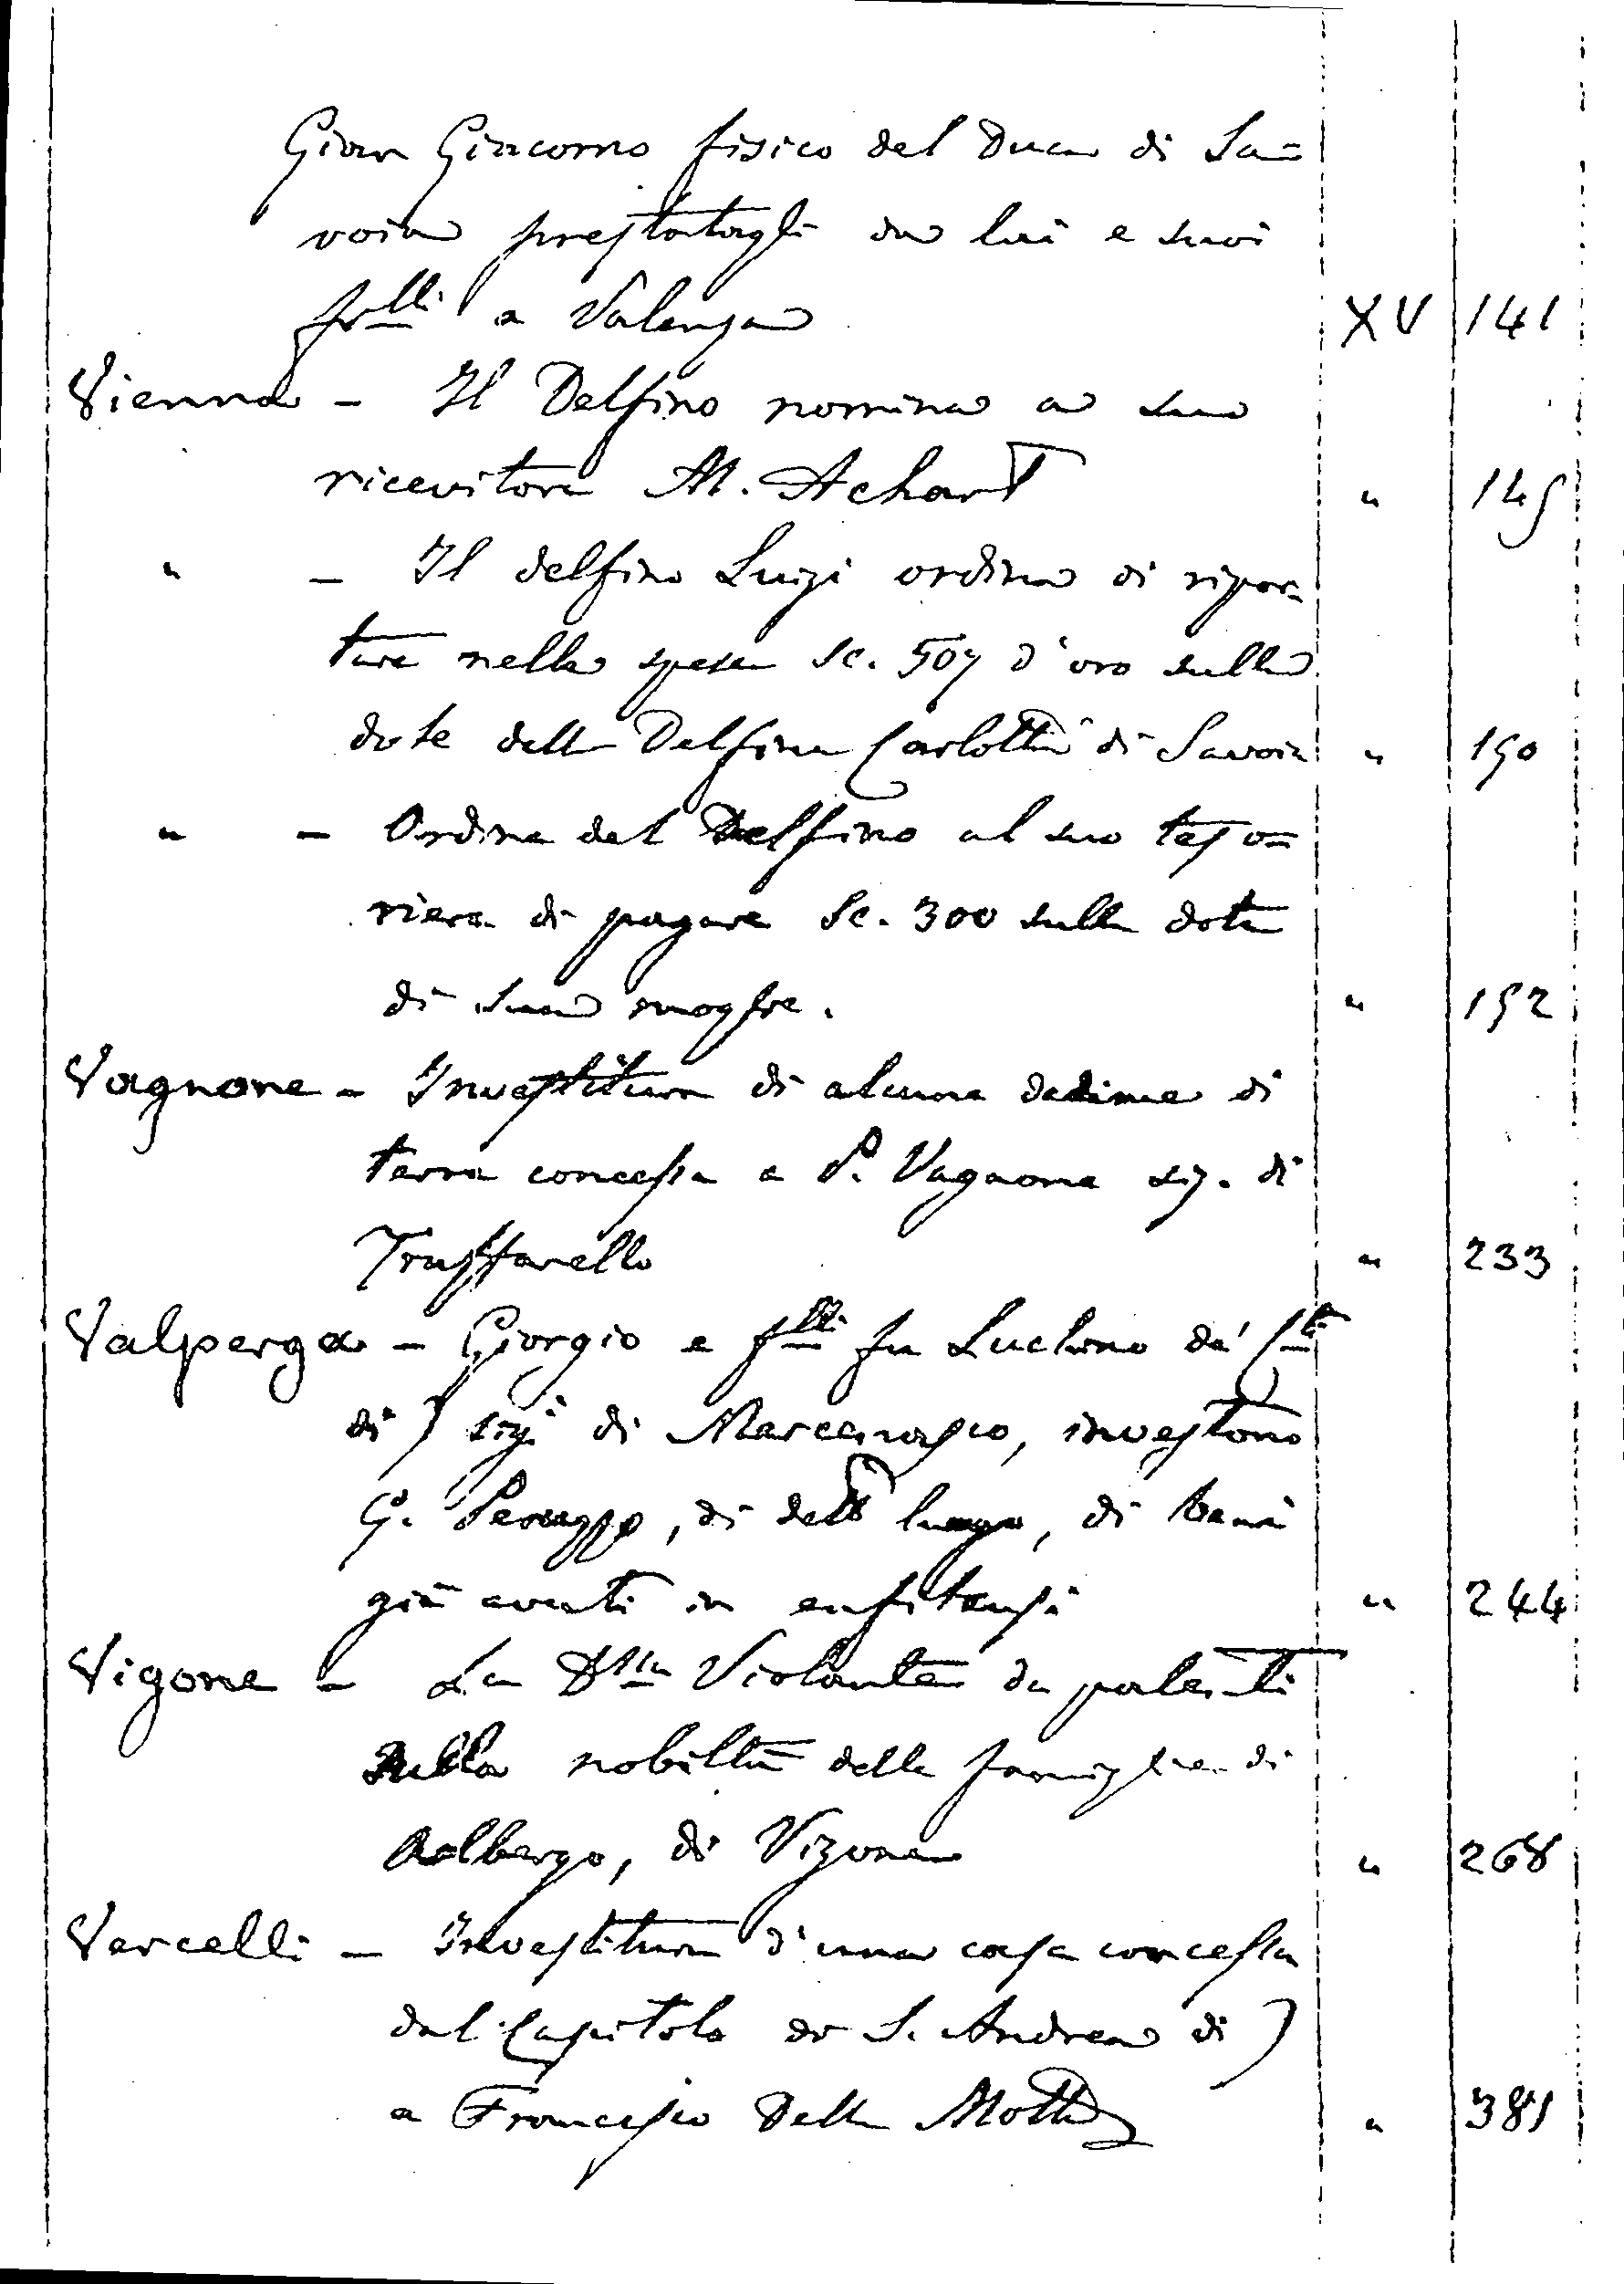 Gian Giacomo fisico del Duca di Sa=
voia prestatagli da lui e suoi
frlli a Valenza XV 141
Vienna - Il Delfino nomina a suo
ricevitore M. Achart " 145
" - Il delfino Luigi ordina di ripor=
tare nelle spese sc. 507 d'oro sulla
dote della Delfina Carlotta di Savoia " 150
" - Ordine del Delfino al suo teso=
riere di pagare Sc. 300 sulla dote
di sua moglie. " 152
Vagnone - Investitura di alcune decime di
terra concessa a P. Vagnone sig. di
Truffarello " 233
Valperga - Giorgio e flli fu Luchino de' Cti
di ) sigi di Marcenasco, investono
G. Peruzzo, di detto luogo, di beni
già avuti in enfiteusi " 244
Vigone - La Dssa Violante da patenti
sulla nobiltà delle famiglie di
Aalbergo, di Vigone " 268
Vercelli - Investitura d'una casa concessa
dal Capitolo di S. Andrea di )
a Francesco Della Motta " 381